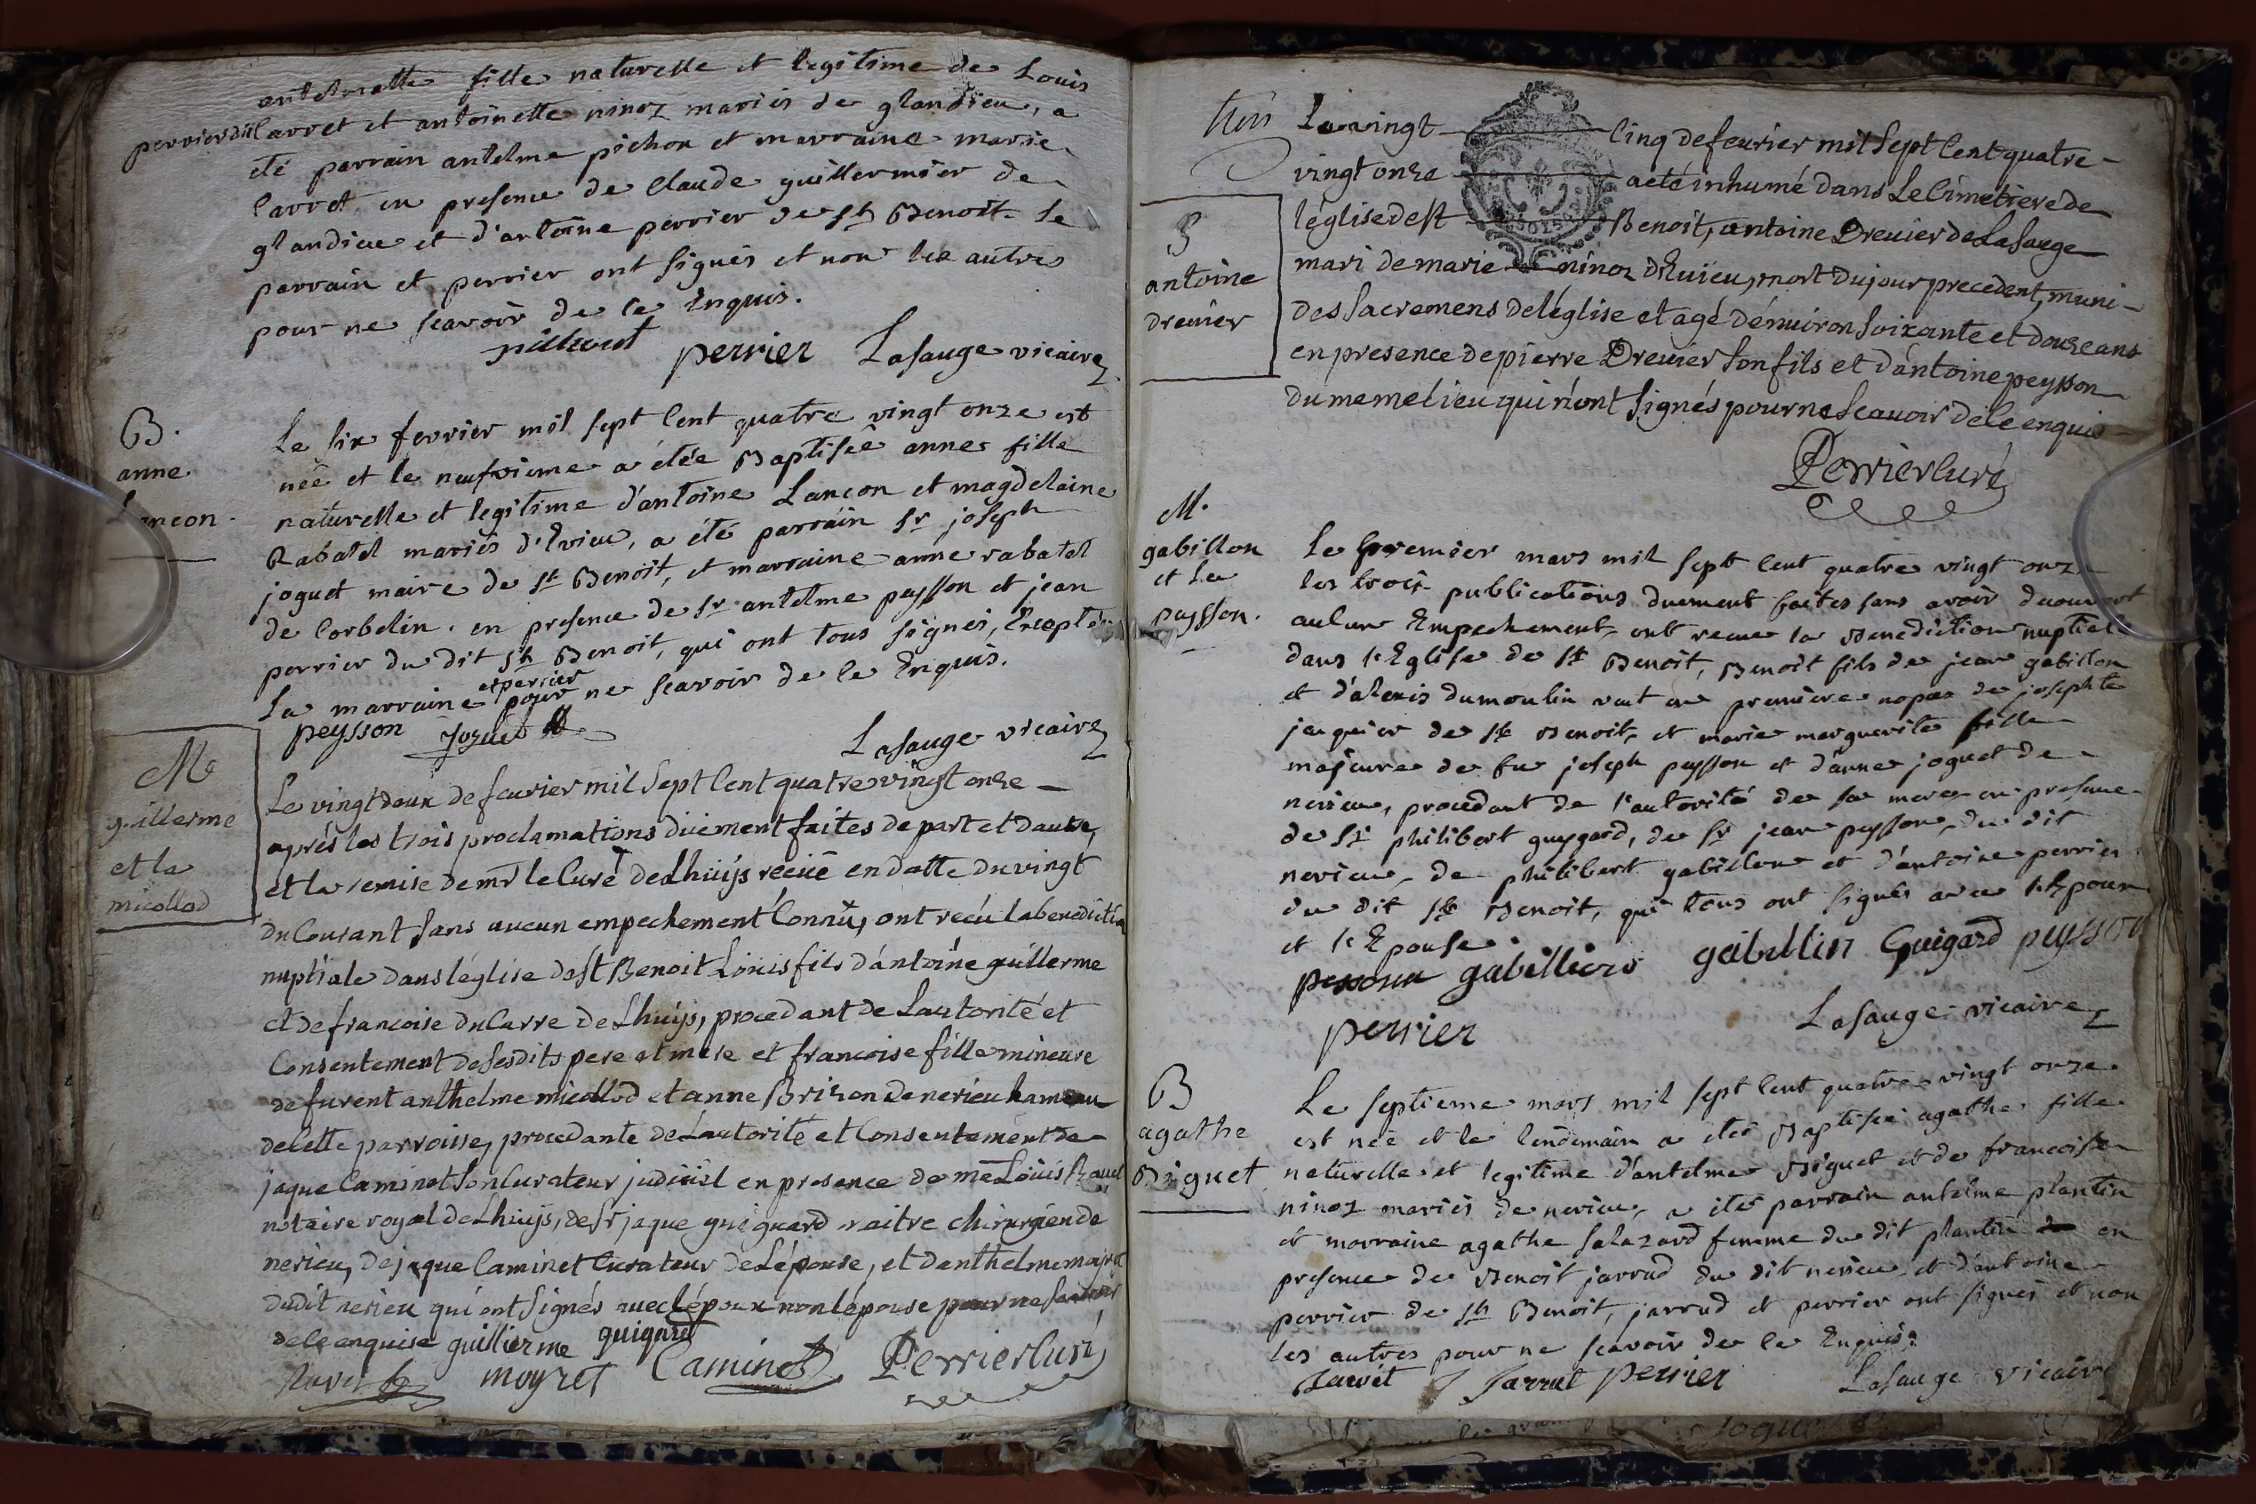 antelmette fille naturelle et legitime de Louis
perrier dit Carret et antoinette ninoz mariés de glandieu, a
été parrain antelme pichon et marraine marie
Carret en presence de Claude guillermier de
glandieu et d'antoine perrier de st Benoit le
parrain et perrier ont signés et non les autres
pour ne scavoir de ce Enquis.
perrier Lasauge vicaire
B.
anne
Lancon
Le six fevrier mil sept Cent quatre vingt onze est
née et le neufvieme a étée Baptisée anne fille
naturelle et legitime d'antoine Lancon et magdelaine
Rabatel mariés d'Evieu, a été parrain sr joseph
joguet maire de st Benoit, et marraine anne rabatel
de Corbelin. en presence de sr antelme peysson et jean
perrier du dit st Benoit, qui ont tous signés, Excepté
et perrier
La marraine pour ne scavoir de ce Enquis.
peysson joguet
Lasauge vicaire
M
guillerme
et la
micollod
Le vingt deux de feurier mil sept Cent quatre vingt onze
aprés les trois proclamations düement faites de part et dautre,
et la remise de mr le Curé de Lhuÿs recüe en datte du vingt
du Courant sans aucun empechement Connü, ont recu la benediction
nuptiale dans léglise de st Benoit Loüis fils d'antoine guillerme
et de francoise du Carre de Lhuÿs, procedant de Lautorité et
Consentement de sesdits pere et mere et francoise fille mineure
de furent anthelme micollod et anne Brizon de nerieu hameau
de Cette parroisse, procedante de Lautorité et Consentement de
jaque Caminet son Curateur judiciel en presence de me Loüis Ravet
notaire royal de Lhuÿs, de sr jaque guiguard maitre chirurgien de
nerieu, de jaque Caminet Curateur de Lépouse, et danthelme moyret
dudit nerieu qui ont signés avec lépoux non lépouse pour ne scavoir
de Ce enquise guillierme guigard
Ravet moyret Caminet Perrier Curé
Le vingt Cinq de feurier mil sept Cent quatre
vingt onze a été inhumé dans Le Cimetiere de
léglise de st Benoit, antoine Dreuier de La sauge
mari de marie ninoz d'Euïeu, mort du jour precedent, muni
des sacremens de léglise et agé dénuiron soixante et douze ans
en presence de pierre Dreuier son fils et d'antoine peysson
du meme lieu qui n'ont signés pour ne Scauoir de Ce enquis
Perrier Curé
S
antoine
dreuier
M.
gabillon
et La
peysson.
Le premier mars mil sept Cent quatre vingt onze
les trois publications duement faites sans avoir decouvert
aucune Empechement, ont recue la Benediction nuptiale
dans l'Eglise de st Benoit, Benoit fils de jean gabillon
et d'alexis dumoulin veuf en premiere nopce de josephte
jacquier de st Benoit, et marie marguerite fille
majeure de fu joseph peysson et d'anne joguet de
nerieu, procedant de l'autorité de sa mere en presence
de sr philibert guygard, de sr jean peysson, du dit
nerieu, de philibert gabillon et d'antoine perrier
du dit st Benoit, qui tous ont signés avec l'Epoux
et l'Epouse.
gabillion Guigard peysson
perrier Lasauge vicaire
B
agathe
Biguet
Le septieme mars mil sept Cent quatre vingt onze
est née et le lendemain a étée Baptisée agathe fille
naturelle et legitime d'antelme Biguet et de francoise
ninoz mariés de nerieu, a été parrain antelme plantin
et marraine agathe salazard femme du dit plantin en
presence de Benoit jarrud du dit nerieu et d'antoine
perrier de st Benoit, jarrud et perrier ont signés et non
les autres pour ne scavoir de ce Enquis.
Jarrut perrier Lasauge vicaire